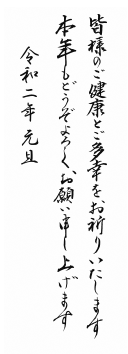 皆様のご健康とご多幸を、お祈りいたします
本年もどうぞよろしく、お願い申し上げます
令和二年 元旦